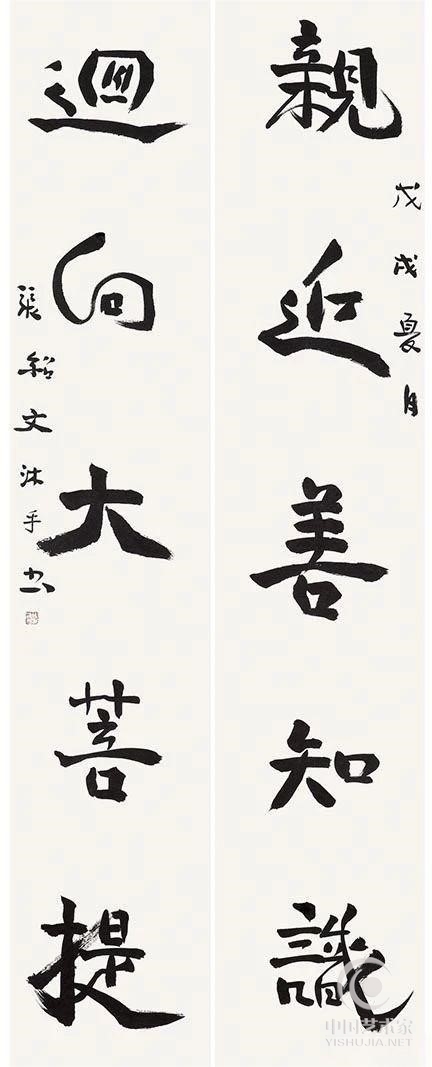 親近善知識
戊戌夏月
迴向大菩提
張紹文沐手書
中国艺术家
YISHUJIA.NET